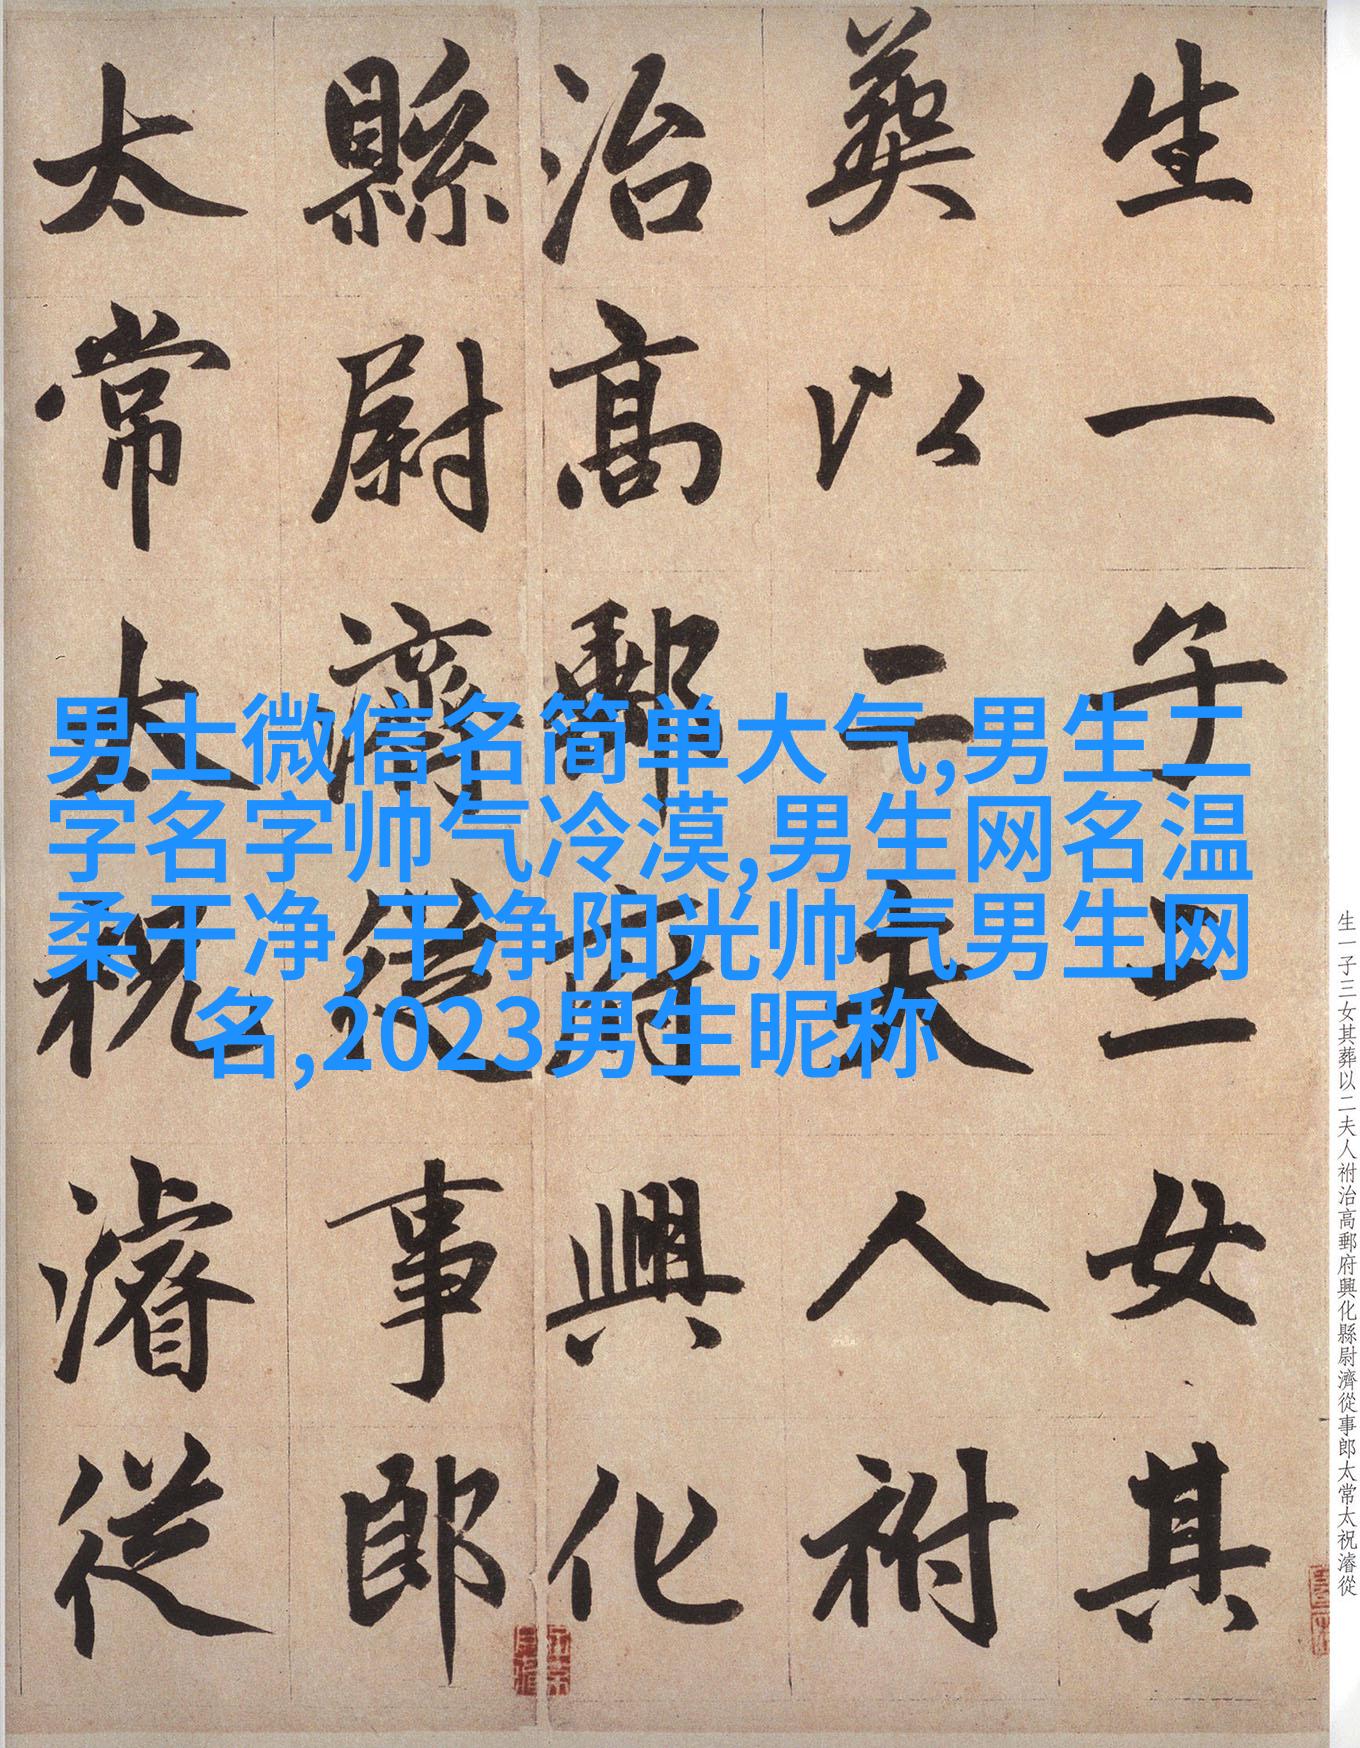 生一子三女其
葬以二夫人祔
治高郵府興化
縣尉濟從事郎
太常太祝濬從
男士微信名简单大气,男生二
字名字帅气冷漠,男生网名温
柔干净,干净阳光帅气男生网
名,2023男生昵称
生一子三女其葬以二夫人祔治高郵府興化縣尉濟從事郎太常太祝濬從